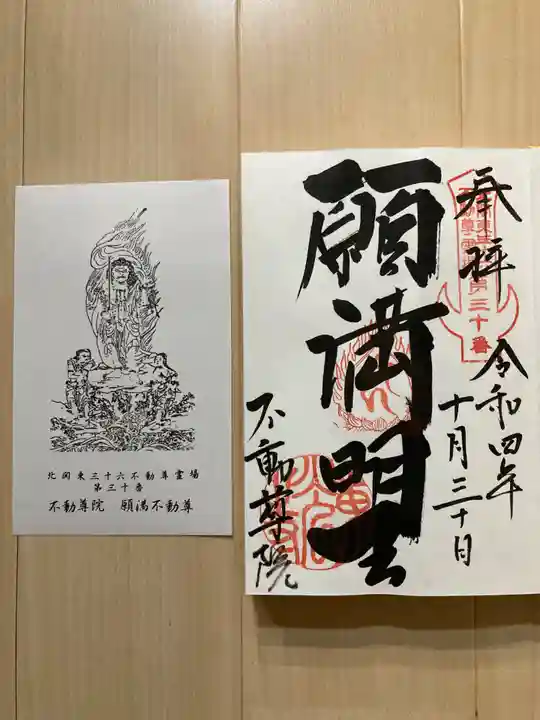 北関東三十六不動尊霊場
第三十番
不動尊院 願満不動尊
奉拝
令和四年
十月三十日
願満明王
不動尊院